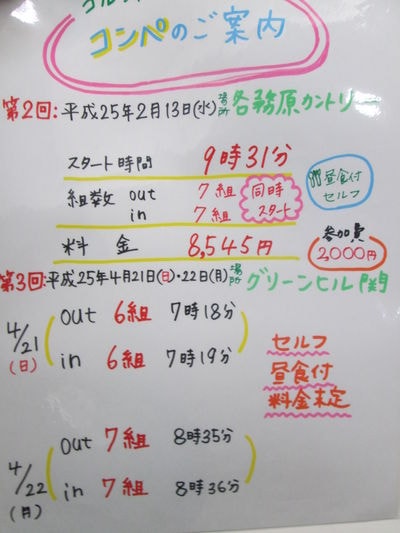 コンペのご案内
第2回:平成25年2月13日(水)場所 各務原カントリー
スタート時間 9時31分
組数 out 7組 同時
in 7組 スタート
昼食付
セルフ
料金 8,545円
参加費
2,000円
第3回:平成25年4月21日(日)・22日(月)場所 グリーンヒル関
4/21 out 6組 7時18分
(日) in 6組 7時19分
セルフ
昼食付
料金未定
out 7組 8時35分
4/22 in 7組 8時36分
(月)